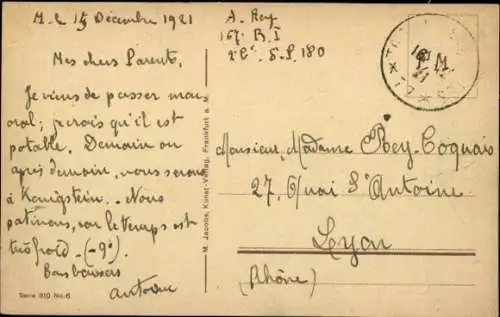 M. le 15 Décembre 1921
Mes chers Parents,
Je viens de passer mon
oral; je crois qu'il est
potable. Demain ou
après demain, nous serons
à Königstein. Nous
patinons, car le temps est
très froid. (-9°)
Bons baisers
Antoine
Serie 810 No. 6
M. Jacobs, Kunst-Verlag, Frankfurt a. M.
A. Rey
167e R. I
S.P. 180
Monsieur, Madame Rey-Coquais
27, Quai St Antoine
Lyon
(Rhône)